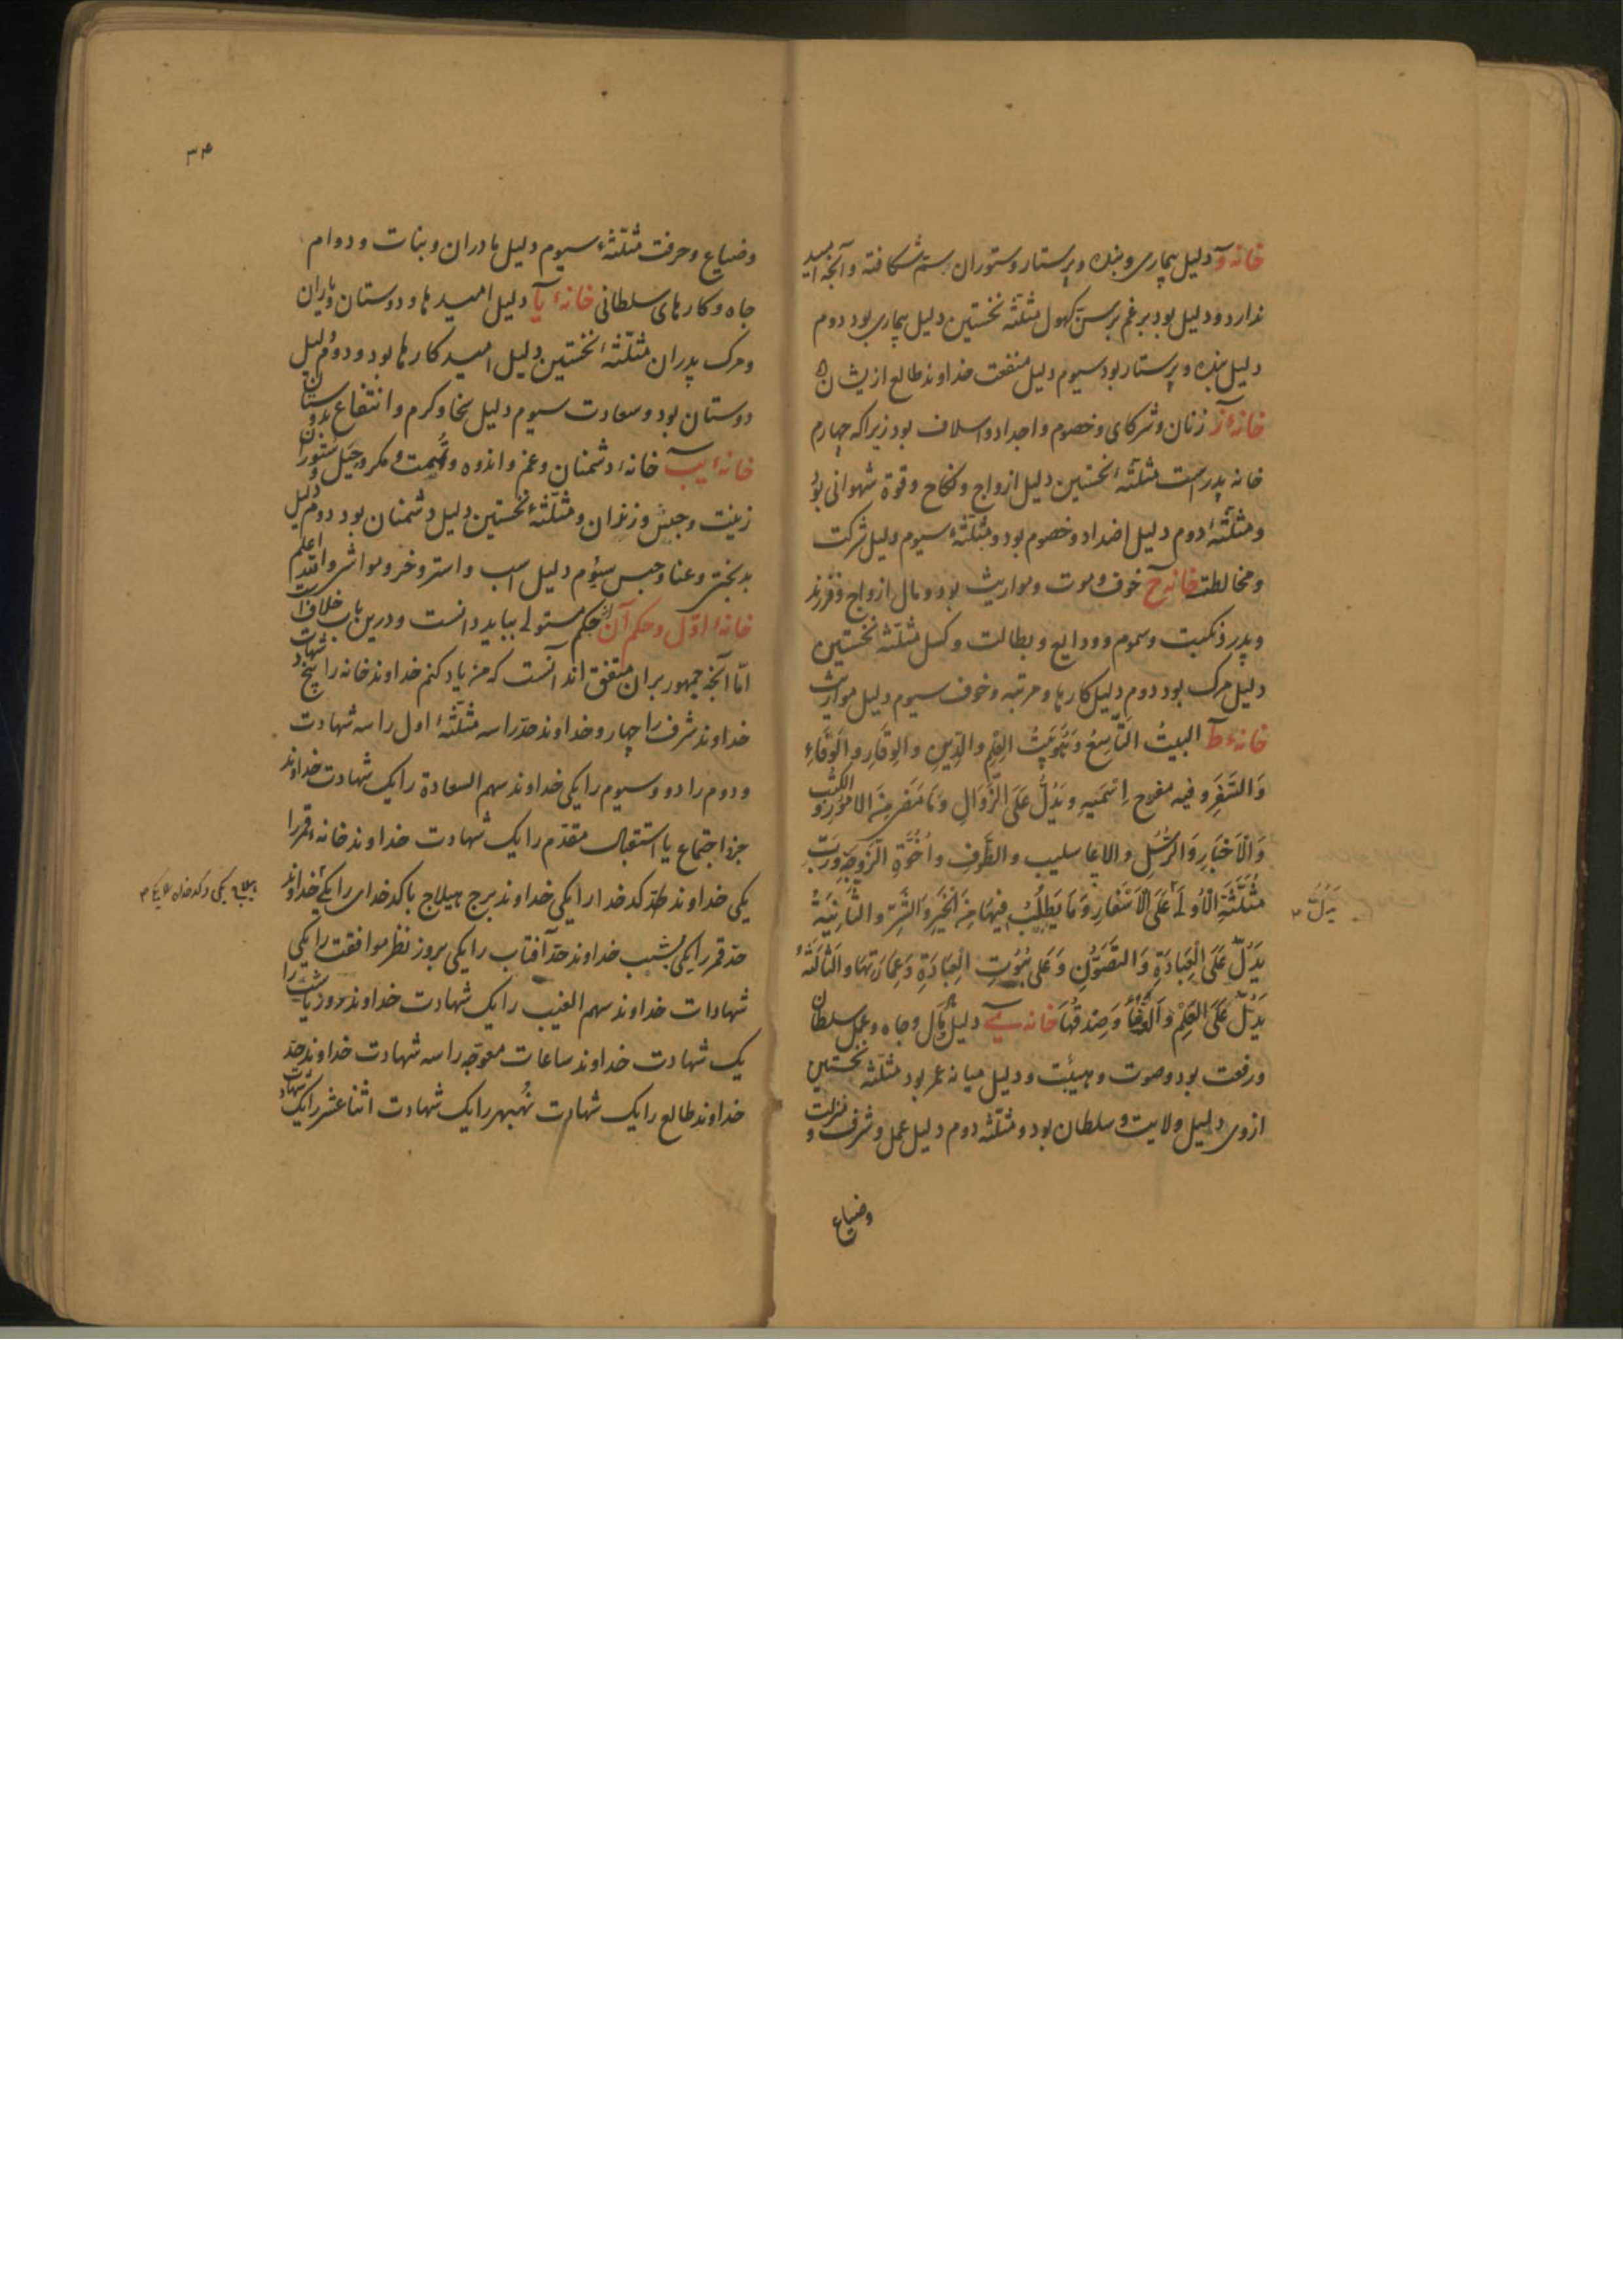 خانهٔ و دلیل بیماری و بنده و پرستار و ستوران ستم شکافته و آنچه امید
ندارد و دلیل بود بر غم بر سن کهول مثلثهٔ نخستین دلیل بیماری بود دوم
دلیل بنده و پرستار بود سیوم دلیل منفعت خداوند طالع ازیشان
خانهٔ ز زنان و شرکای و خصوم و اجداد و اسلاف بود زیرا که چهارم
خانه پدر است مثلثهٔ نخستین دلیل ازواج و نکاح و قوة شهوانی بود
و مثلثهٔ دوم دلیل اضداد و خصوم بود و مثلثهٔ سیوم دلیل شرکت
و مخالطت خانه ح خوف و موت و مواریث بود و مال ازواج و فرزند
و پدر و نکبت و سموم و ودایع و بطالت و کسل مثلثهٔ نخستین
دلیل مرک بود دوم دلیل کارها و مرتبه و خوف سیوم دلیل مواریث
خانهٔ ط البیتُ التّاسِعُ العِلمِ والدِّینِ والوِقَارِ والوَفَاءِ
وَالسَّفَرِ و فیه و یَدُلُّ عَلَی الزَّوَالِ وَمَا مَضَی مِنَ الامُورِ و الکتُبِ
وَالْاَخبَارِ وَالرُّسُلِ والاعاسلیب والظَّرفِ و اُخُوَّةِ الزَّوجَةِ وَرَبّ
مُثَلَّثَةِ الْاُولَی عَلَی الْاَسْفَارِ وَ مَا یَطْلُبُ فِیهَا مِنَ الْخَیْرِ وَالشَّرِّ و الثَّانِیَةُ
یدُلّ ۳
یَدُلّ عَلَی الْعِبَادَةِ وَ التَّصَوُّنِ وَ عَلَی بُیُوتِ الْعِبَادَةِ وَ عِمَارَتِهَا وَ الثالثَةُ
یَدُلّ عَلَی العِلْمِ وَ الرُّؤْیَا وَ صِدقِهَا خانه ی دلیل و جاه و عمل سلطان
و رفعت بود و صوت و هیئت و دلیل میانه عمر بود مثلثهٔ نخستین
از وی دلیل ولایت و سلطان بود و مثلثه دوم دلیل عمل و شرف و منزلت و
وضیاع
۳۴
وضیاع و حرفت مثلثهٔ سیوم دلیل مادران و بنات و دوام
جاه و کارهای سلطانی خانهٔ یا دلیل امیدها و دوستان و یاران
و مرک پدران مثلثهٔ نخستین دلیل امید کارها بود و دوم دلیل
دوستان بود و سعادت سیوم دلیل سخا و کرم و انتفاع بدوستان
خانهٔ یب خانهٔ دشمنان و غم و اندوه و تُهمت و مکر و حِیَل و ستوران
زینت و حبس و زندان و مثلثهٔ نخستین دلیل دشمنان بود دوم دلیل
بدبختی و عنا و حبس سیوُم دلیل اسب و استر و خر و مواشی والله اعلم
خانهٔ اوّل و حکم آن حکم مستولی بباید دانست و درین باب خلافست
امّا آنچه جمهور بران متفق‌اند آنست که من یاد کنم خداوند خانه را پنج شهادت
خداوند شرف را چهار و خداوند حدّ را سه مثلثهٔ اول را سه شهادت
و دوم را دو و سیوم را یکی خداوند سهم السعادة را یک شهادت خداوند
جزو اجتماع یا استقبال مقدّم را یک شهادت خداوند خانهٔ قمر را
یکی خداوند حدّ کدخدا را یکی خداوند برج هیلاج یا کدخدای را یکی خداوند
حدّ قمر را یکی بشب خداوند حدّ آفتاب را یکی بروز نظر موافقت را یکی
شهادات خداوند سهم الغیب را یک شهادت خداوند روز یا شب را
یک شهادت خداوند ساعات معوجّه را سه شهادت خداوند حدّ
خداوند طالع را یک شهادت نُهبهر را یک شهادت اثنا عشر را یک شهادت